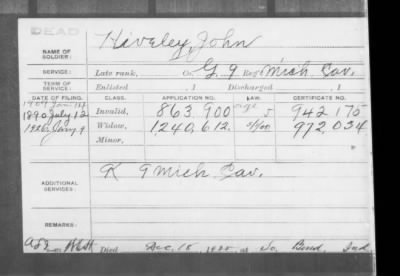 DEAD
NAME OF SOLDIER: Hiveley, John
SERVICE: Late rank, Co. G, 9 Reg't Mich. Cav.
TERM OF SERVICE: Enlisted , 1 Discharged , 1
DATE OF FILING. CLASS. APPLICATION NO. LAW. CERTIFICATE NO.
1909 Jan. age
1890 July 12 Invalid, 863.900 942 175
1926 Jany. 9 Widow, 1.240.612. 972 034
Minor,
ADDITIONAL SERVICES: K 9 Mich Cav.
REMARKS:
Died Dec. 18, at So. Bend, Ind